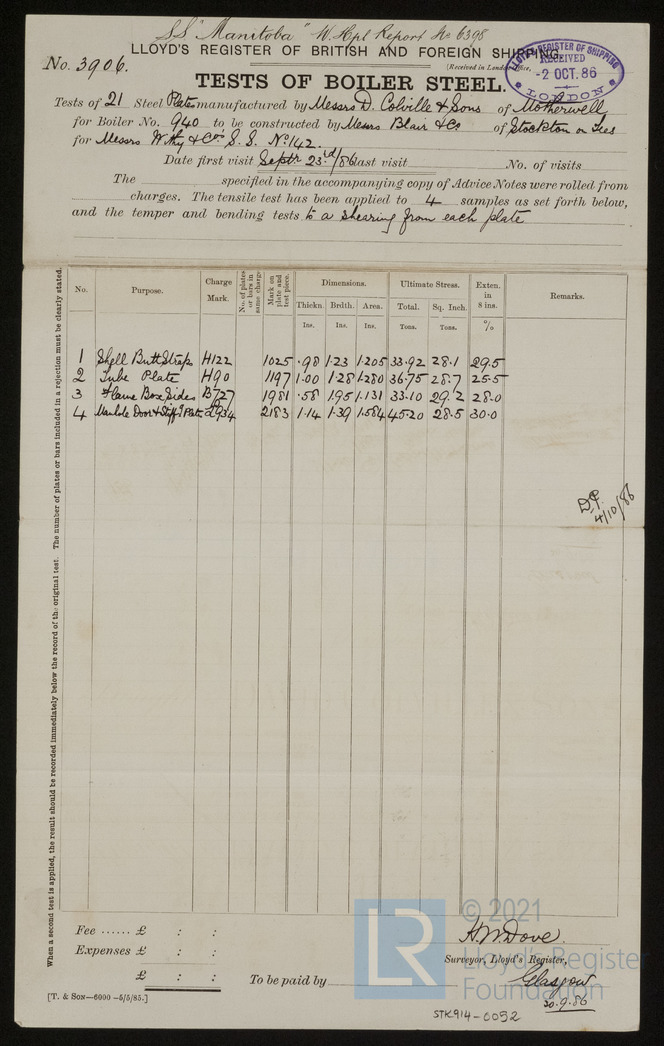 SS "Manitoba" W. Hpl Report No 6398
LLOYD'S REGISTER OF BRITISH AND FOREIGN SHIPPING.
No. 3906.
(Received in London Office,
LLOYD'S REGISTER OF SHIPPING
RECEIVED
-2 OCT. 86
LONDON
TESTS OF BOILER STEEL.
Tests of 21 Steel Plates manufactured by Messrs D. Colville & Sons of Motherwell
for Boiler No. 940 to be constructed by Messrs Blair & Co of Stockton on Tees
for Messrs Withy & Co's S.S. No. 142.
Date first visit Septr 23rd/86 last visit No. of visits
The specified in the accompanying copy of Advice Notes were rolled from
charges. The tensile test has been applied to 4 samples as set forth below,
and the temper and bending tests to a shearing from each plate
No. Purpose. Charge Mark. No. of plates or bars in same charge Mark on plate and test piece. Dimensions. Ultimate Stress. Exten. in 8 ins. Remarks.
Thickn. Brdth. Area. Total. Sq. Inch.
Ins. Ins. Ins. Tons. Tons. %
1 Shell Butt Straps H122 1025 .98 1.23 1.205 33.92 28.1 29.5
2 Tube Plate H90 1197 1.00 1.28 1.280 36.75 28.7 25.5
3 Flame Box Sides B727 1981 .58 1.95 1.131 33.10 29.2 28.0
4 Manhole Door & Stiffg Plate 2934 2183 1.14 1.39 1.584 45.20 28.5 30.0
4/10/86
When a second test is applied, the result should be recorded immediately below the record of the original test. The number of plates or bars included in a rejection must be clearly stated.
Fee ...... £ : :
Expenses £ : :
£ : :
To be paid by
H. W. Dove.
Surveyor, Lloyd's Register,
Glasgow
30.9.86
[T. & SON—6000—5/5/85.]
STK914-0052
LR
© 2021
Lloyd's Register
Foundation